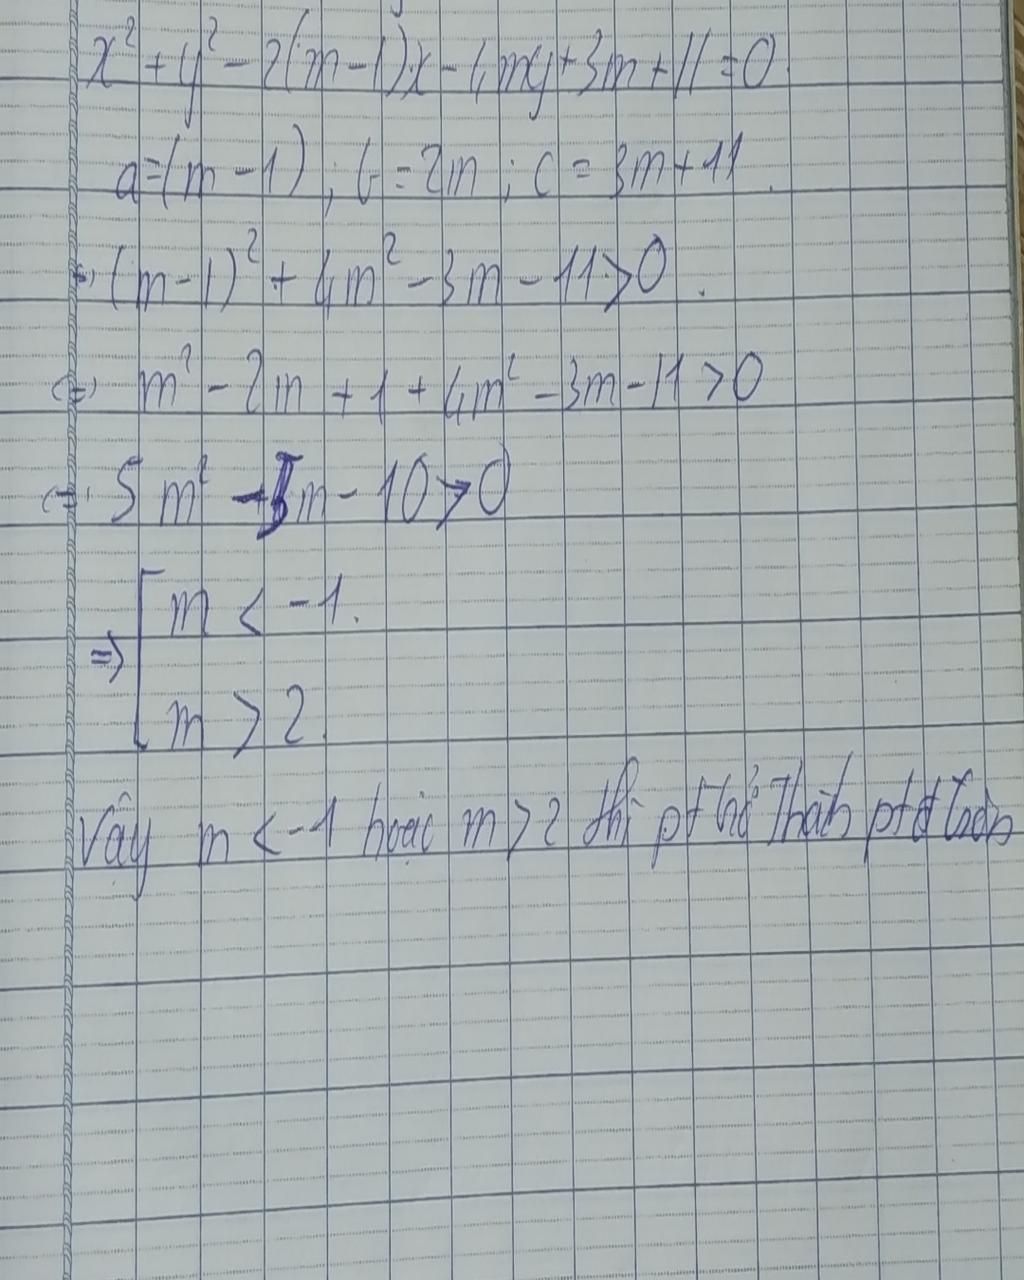 x² + y² - 2(m-1)x - 4my + 3m + 11 = 0
a = (m - 1) ; b = 2m ; c = 3m + 11
=> (m-1)² + 4m² - 3m - 11 > 0.
<=> m² - 2m + 1 + 4m² - 3m - 11 > 0
<=> 5m² - 5m - 10 > 0
=> [ m < -1.
m > 2.
Vậy m < -1 hoặc m > 2 thì pt trở thành ptđ tròn